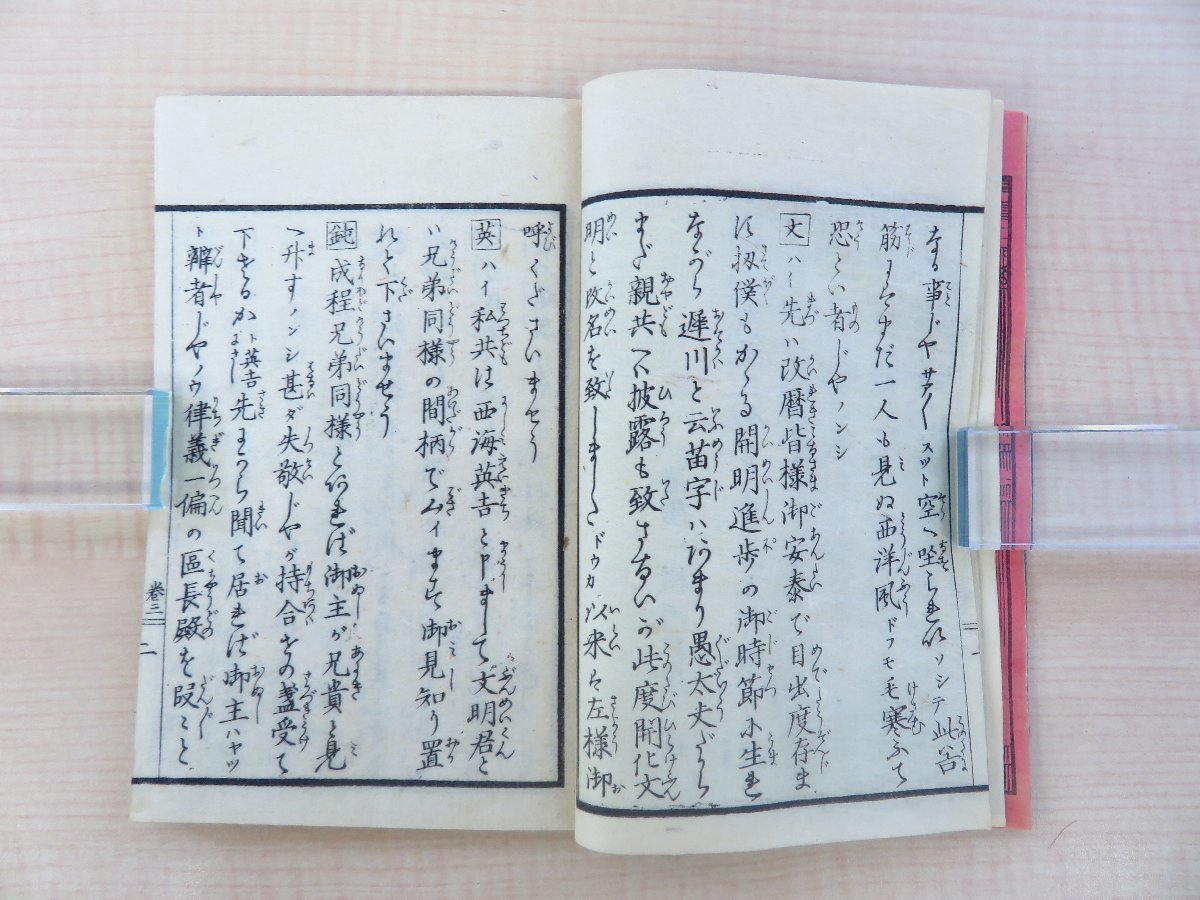 なる事じやサア〳〵スツト空へ
筋まちまだ一人も見ぬ西洋風ドフモ毛寒ふて
恐とい者じやノンシ
文 ハイ先ハ改暦皆様御安泰で目出度存ま
す扨僕もかゝる開明進歩の御時節に生れ
ながら遅川と云苗字ハあまり愚太丈だから
まだ親共へ披露も致さないが此度開化文
明と改名を致しましたドウカ以来は左様御
呼くださいませう
英 ハイ私共は西海英吉と申まして文明君と
ハ兄弟同様の間柄でムイます御見知り置
れて下さいませう
鈍 成程兄弟同様といへば御主が兄貴と見
へ升すノンシ甚ダ失敬じやが持合せの盞受て
下さるかト英吉先まから聞て居れば御主ハヤツ
ト辨者じやノウ律義一偏の區長殿を
卷三
二